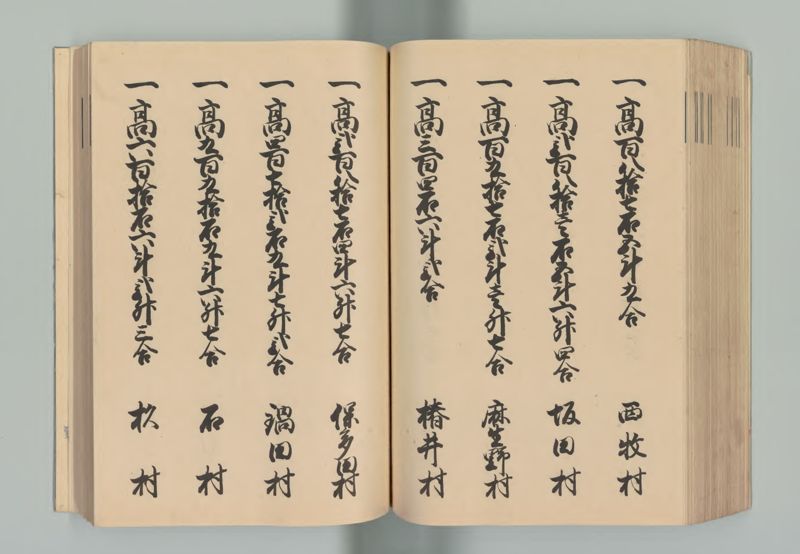 一高百八拾七石五斗九合 西牧村
一高弐百八拾壱石五斗六升四合 坂田村
一高百九拾七石弐斗壱升七合 麻生野村
一高三百四石六斗弐合 椿井村
一高弐百八拾七石四斗六升七合 保多田村
一高四百七拾弐石九斗七升弐合 鍋田村
一高九百九拾石九斗六升七合 石村
一高六百拾石六斗弐升三合 杉村